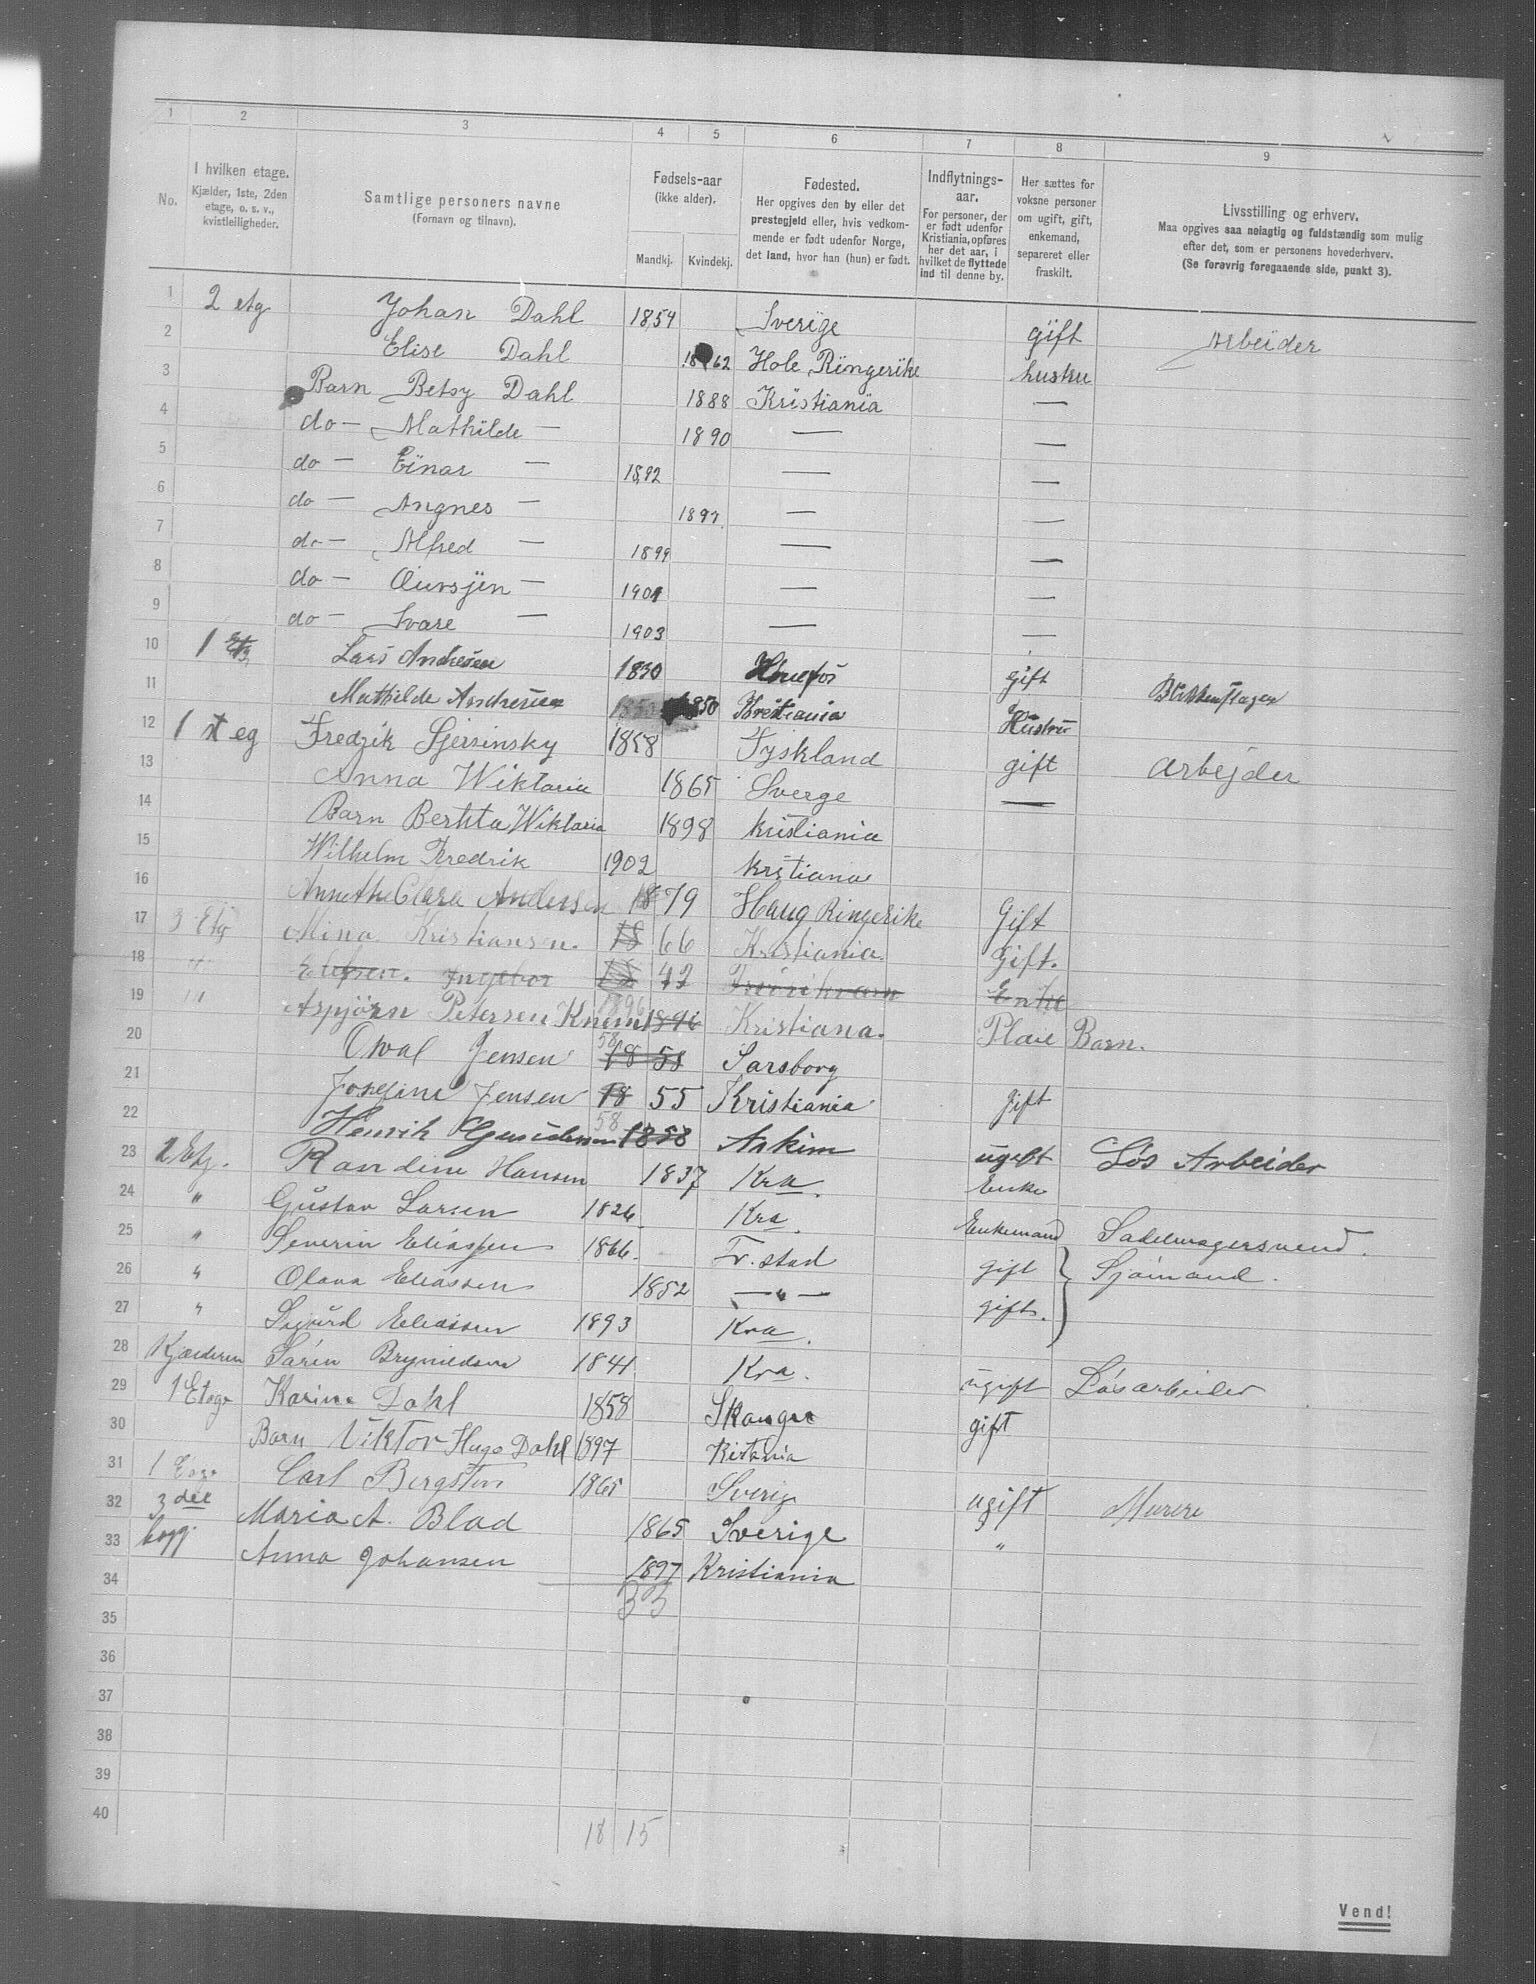 1 2 3 4 5 6 7 8 9
No.
I hvilken etage.
Kjælder, 1ste, 2den
etage, o. s. v.,
kvistleiligheder.
Samtlige personers navne
(Fornavn og tilnavn).
Fødsels-aar
(ikke alder).
Mandkj. Kvindekj.
Fødested.
Her opgives den by eller det
prestegjeld eller, hvis vedkom-
mende er født udenfor Norge,
det land, hvor han (hun) er født.
Indflytnings-
aar.
For personer, der
er født udenfor
Kristiania, opføres
her det aar, i
hvilket de flyttede
ind til denne by.
Her sættes for
voksne personer
om ugift, gift,
enkemand,
separeret eller
fraskilt.
Livsstilling og erhverv.
Maa opgives saa nøiagtig og fuldstændig som mulig
efter det, som er personens hovederhverv.
(Se forøvrig foregaaende side, punkt 3).
1 2 etg Johan Dahl 1854 Sverige gift Arbeider
2 Elise Dahl 1862 Hole Ringerike hustru
3 Barn Betsy Dahl 1888 Kristiania —
4 do — Mathilde — 1890 — —
5 do — Einar — 1892 — —
6 do — Angnes — 1897 — —
7 do — Alfred — 1899 — —
8 do — — 1901 — —
9 do — Svare — 1903 — —
10 1 Etg. Lars Andresen 1830 gift
11 Mathilde Andresen 1850 1850 Kristiania Hustru
12 1 st eg Fredrik Sjersinsky 1858 Tyskland gift arbejder
13 Anna Wiktoria 1865 Sverge —
14 Barn Berhta Wiktoria 1898 kristiania
15 Wilhelm Fredrik 1902 kristiana
16 Annethe Clara Andersen 1879 Haug Ringerike Gift
17 3 Etg Mina Kristiansen. 18 66 Kristiania. Gift.
18 " Ingebor 18 42 Enke
19 " Aspjørn Petersen 1896 1896 Kristiana. Pleie Barn.
20 Oval Jensen 58 18 58 Sarsborg
21 Josefine Jensen 18 55 Kristiania gift
22 Henrik 58 1858 Askim ugift Løs Arbeider
23 1 Etg. Randine Hansen 1837 Kra. Enke
24 " Gustav Larsen 1826. Kra. Enkemand Sadelmagersvend.
25 " Severin Eliassen 1866. Fr. stad gift } Sjømand.
26 " Olava Eliassen 1852 — " — gift.
27 " Sigurd Eliassen 1893 Kra.
28 Kjælderen Søren Brynildsen 1841 Kra. ugift Løsarbeider
29 1 Etage Karine Dahl 1858 gift
30 Barn Viktor Hugo Dahl 1897 Kistania
31 1 Carl Bergsten 1865 Sverig ugift Murere
32 3 del Maria A. Blad 1865 Sverige "
33 Anna Johansen 1897 Kristiania
34 33
35
36
37
38
39
40
18 15
Vend!